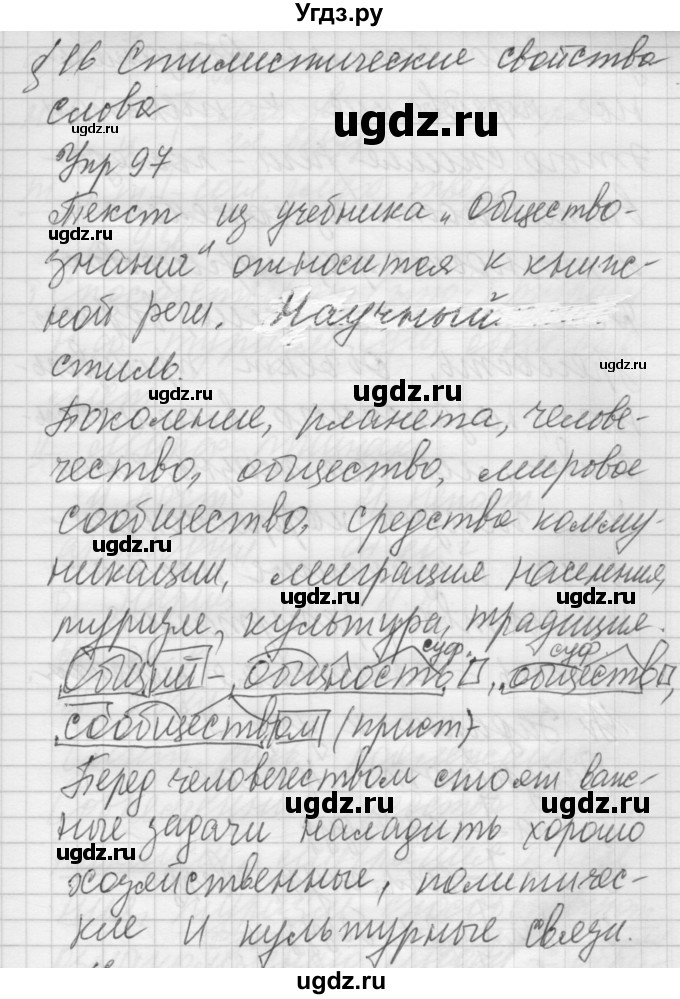 Угдз.ру
§ 16 Стилистические свойства
слова
ugdz.ru
ugdz.ru
Упр 97
Текст из учебника „Общество-
ugdz.ru
знание" относится к книж-
ной речи. Научный
стиль.
ugdz.ru
ugdz.ru
Поколение, планета, челове-
чество, общество, мировое
сообщество, средства комму-
ugdz.ru
никации, миграция населения,
ugdz.ru
туризм, культура, традиция.
суф. суф.
Общий - общность, общество,
сообществом (прист)
Перед человечеством стоят важ-
ugdz.ru
ugdz.ru
ные задачи наладить хорошо
ugdz.ru
хозяйственные, политичес-
кие и культурные связи.
ugdz.ru
ugdz.ru